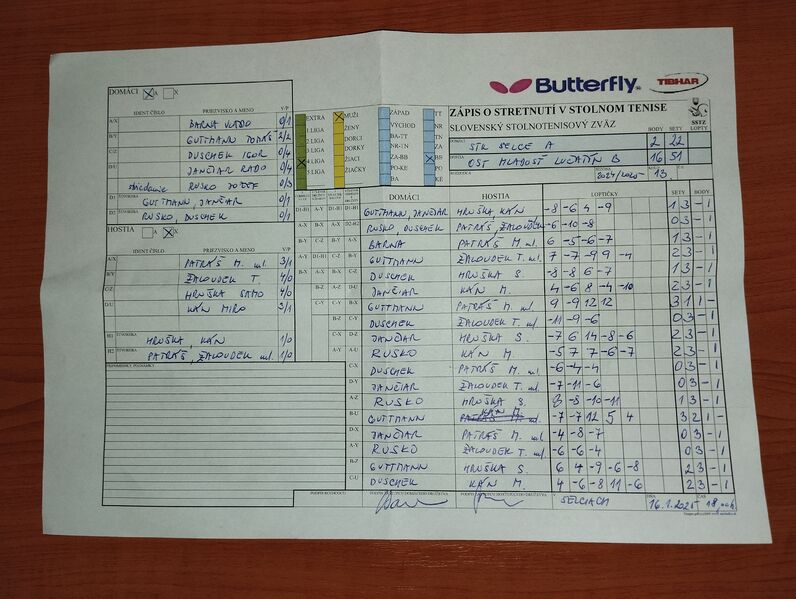 Butterfly
TIBHAR
ZÁPIS O STRETNUTÍ V STOLNOM TENISE
SLOVENSKÝ STOLNOTENISOVÝ ZVÄZ
SSTZ
BODY SETY LOPTY
DOMÁCI STK SELCE A 2 22
HOSTIA OŠT MLADOSŤ LUČATÍN B 16 51
2024/2025 - 13
DOMÁCI A X
IDENT ČÍSLO PRIEZVISKO A MENO V/P
A/X BARNA VLADO 0/1
B/Y GUTTMANN TOMÁŠ 2/2
C/Z DUSCHEK IGOR 0/4
D/U JANČIAR RADO 0/4
striedanie RUSKO JOZEF 0/3
D1 ŠTVORHRA GUTTMANN, JANČIAR 0/1
D2 ŠTVORHRA RUSKO, DUSCHEK 0/1
HOSTIA A X
IDENT ČÍSLO PRIEZVISKO A MENO V/P
A/X PATRÁŠ M. ml. 3/1
B/Y ŽALOUDEK T. 4/0
C/Z HRUŠKA SAMO 4/0
D/U KÁN MIRO 3/1
H1 ŠTVORHRA HRUŠKA, KÁN 1/0
H2 ŠTVORHRA PATRÁŠ, ŽALOUDEK ml. 1/0
PRIPOMIENKY, POZNÁMKY
EXTRA MUŽI ZÁPAD TT
1 LIGA ŽENY VÝCHOD NR
2 LIGA DORCI BA-TT TN
3 LIGA DORKY NR-TN ZA
4 LIGA ŽIACI ZA-BB BB
5 LIGA ŽIAČKY PO-KE PO
BA KE
DOMÁCI HOSTIA LOPTIČKY SETY BODY
GUTTMANN, JANČIAR HRUŠKA, KÁN -8 -6 4 -9 1 3 - 1
RUSKO, DUSCHEK PATRÁŠ, ŽALOUDEK -6 -10 -8 0 3 - 1
BARNA PATRÁŠ M. ml. 6 -5 -6 -7 1 3 - 1
GUTTMANN ŽALOUDEK T. ml. 7 -7 -9 9 -4 2 3 - 1
DUSCHEK HRUŠKA S. -8 -8 6 -7 1 3 - 1
JANČIAR KÁN M. 4 -6 8 -4 -10 2 3 - 1
GUTTMANN PATRÁŠ M. ml. 9 -9 12 12 3 1 1 -
DUSCHEK ŽALOUDEK T. ml. -11 -9 -6 0 3 - 1
JANČIAR HRUŠKA S. -7 6 14 -8 -6 2 3 - 1
RUSKO KÁN M. -5 7 7 -6 -7 2 3 - 1
DUSCHEK PATRÁŠ M. -6 -4 -4 0 3 - 1
JANČIAR ŽALOUDEK T. ml. -7 -11 -6 0 3 - 1
RUSKO HRUŠKA S. 8 -8 -10 -11 1 3 - 1
GUTTMANN KÁN M. -7 -7 12 5 4 3 2 1 -
JANČIAR PATRÁŠ M. ml. -4 -8 -7 0 3 - 1
RUSKO ŽALOUDEK T. ml. -6 -6 -4 0 3 - 1
GUTTMANN HRUŠKA S. 6 4 -9 -6 -8 2 3 - 1
DUSCHEK KÁN M. 4 -6 -8 11 -6 2 3 - 1
PODPIS ROZHODCU
V SELCIACH DŇA 16.1.2025 ČAS 18,00h.